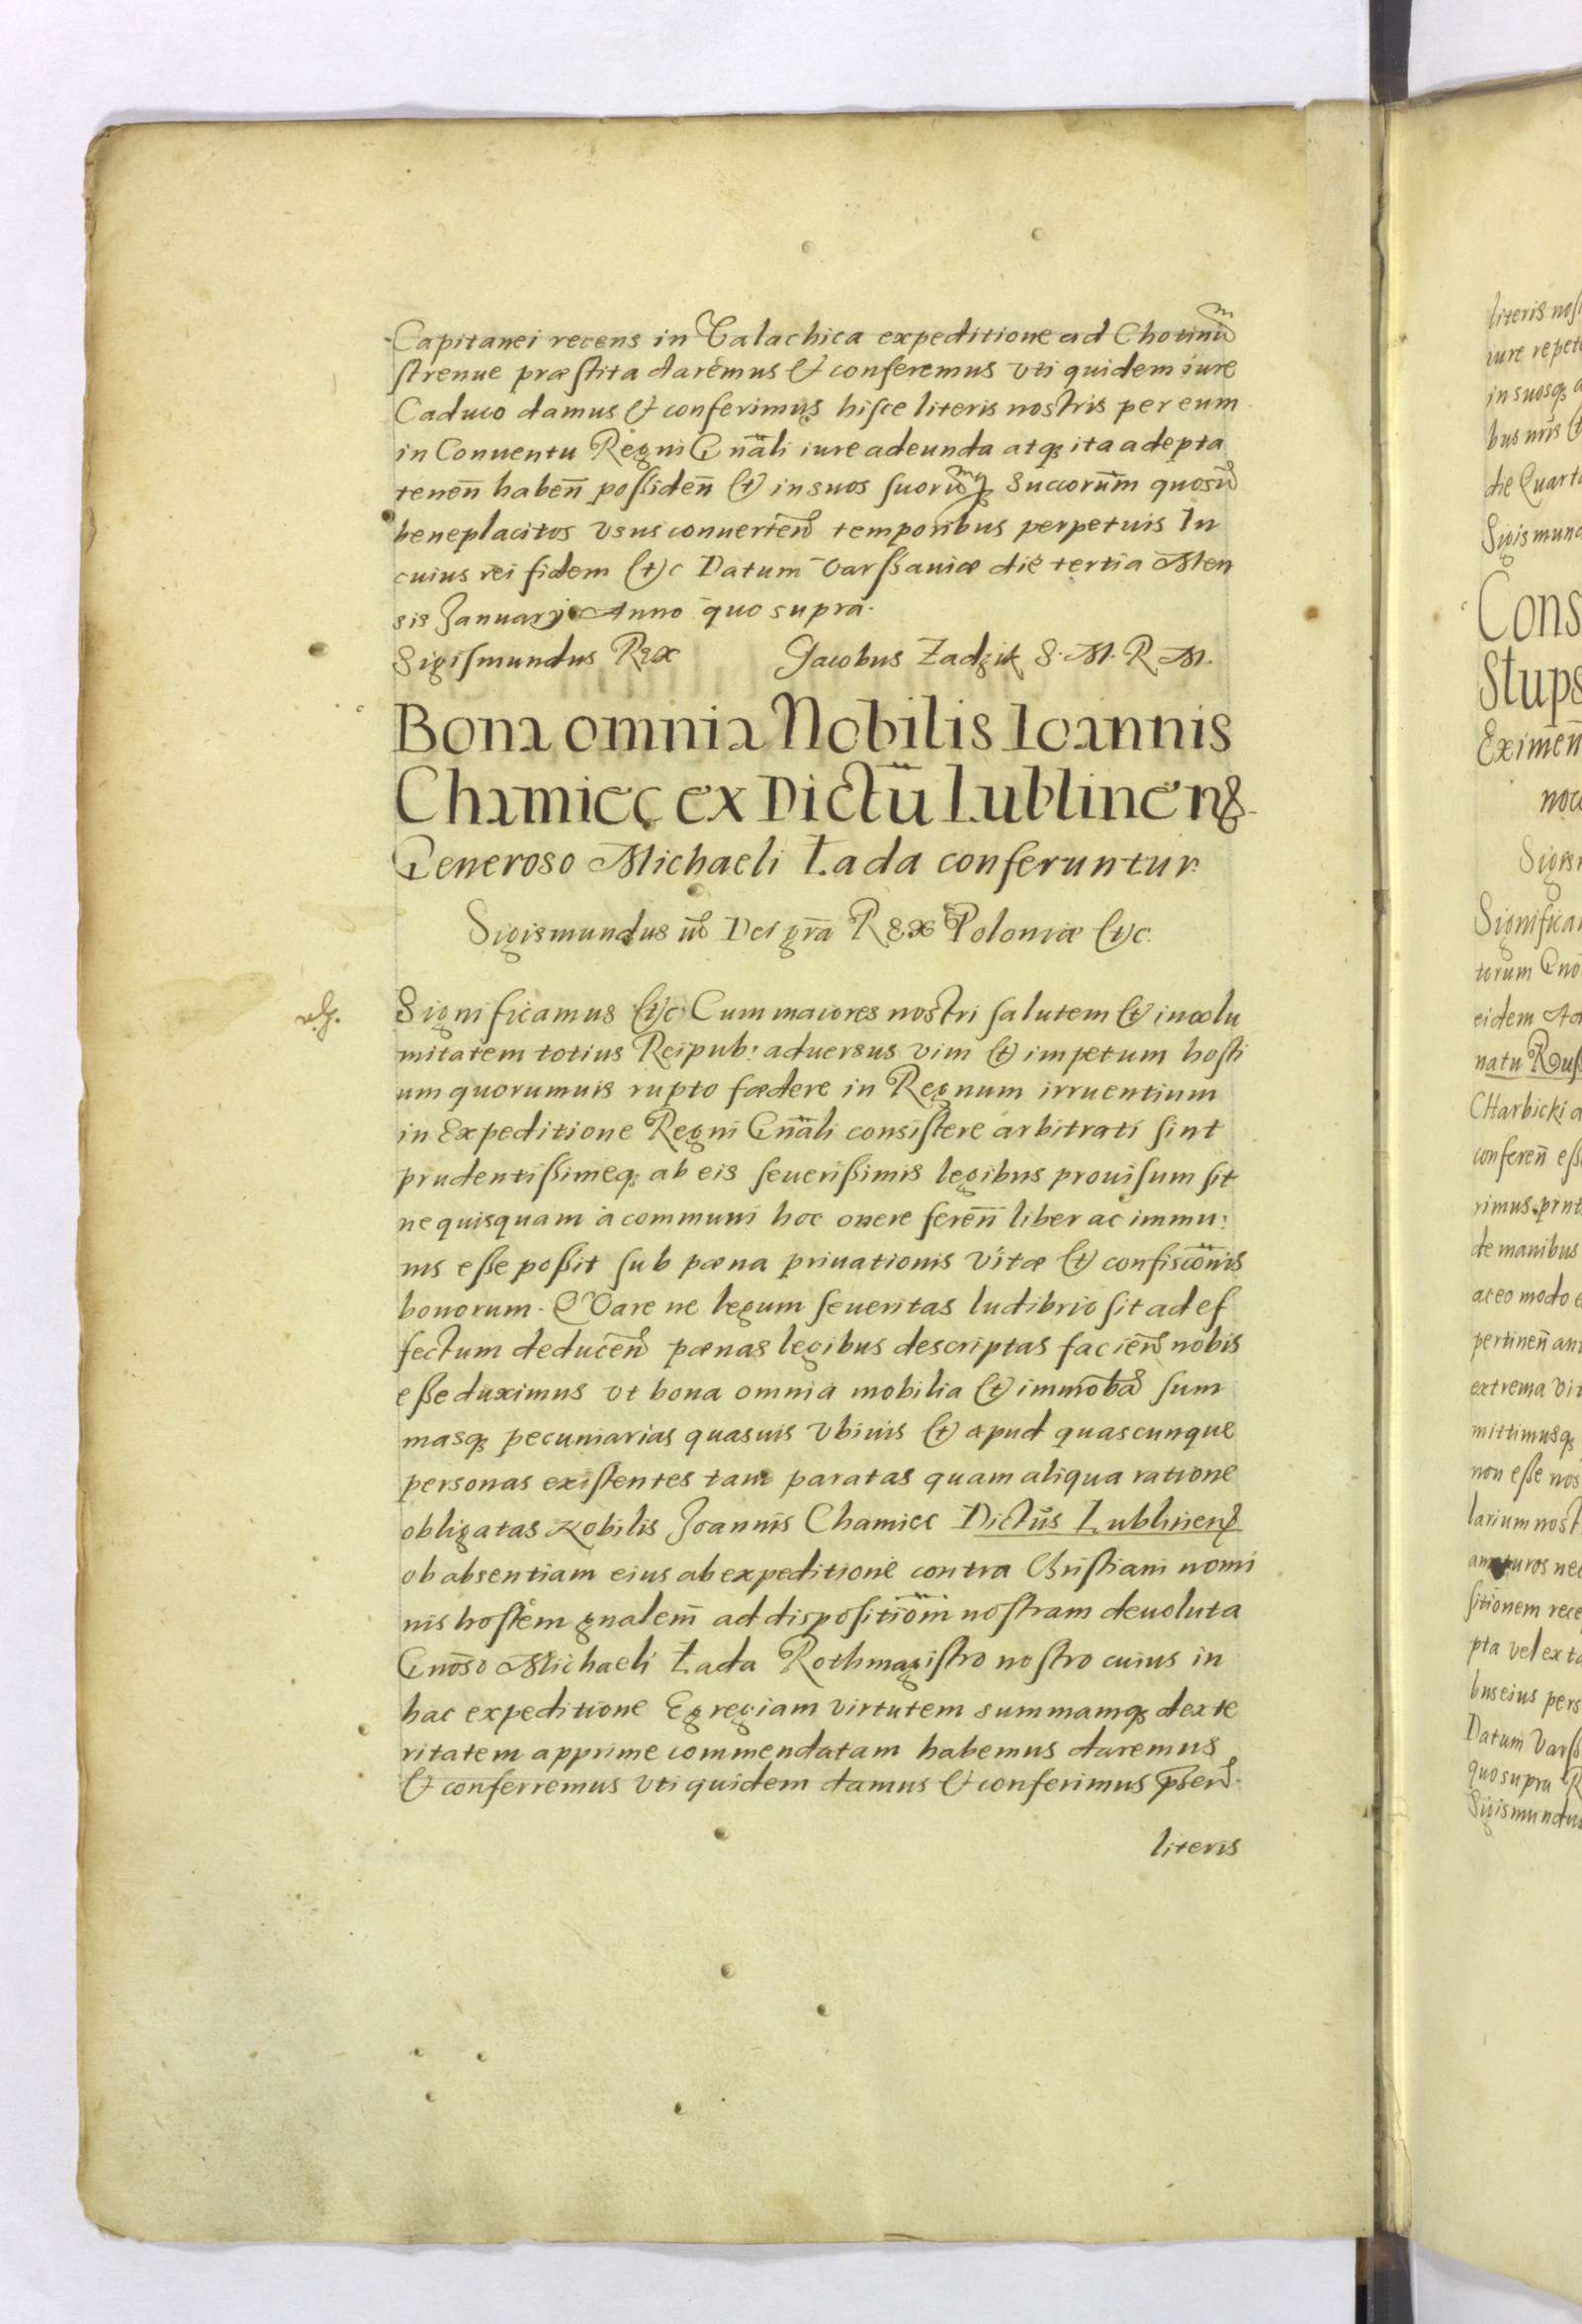 Capitanei recens in Valachica expeditione ad Chotinū
strenue præstita daremus & conferemus vti quidem iure
Caduco damus & conferimus hisce literis nostris per eum
in Conuentu Regni Gnāli iure adeunda atq₃ ita adepta
tenen̄ haben̄ possiden̄ et in suos suorūq₃ Succorūm quosū
beneplacitos vsus conuerten̄ temporibus perpetuis In
cuius rei fidem etc Datum Varssauiæ die tertia Men
sis Januarij Anno quo supra.
Sigismundus Rex Jacobus Zadzik S. M. R. M.
Bona omnia Nobilis Ioannis
Chamiec ex Dictū Lublinens
Generoso Michaeli Łada conferuntur
Sigismundus Dei grā Rex Poloniæ etc.
Significamus etc Cum maiores nostri salutem et incolu
mitatem totius Reipub: aduersus vim et impetum hosti
um quorumuis rupto fœdere in Regnum irruentium
in Expeditione Regni Gnāli consistere arbitrati sint
prudentissimeq₃ ab eis seuerissimis legibus prouisum sit
ne quisquam a communi hoc onere feren̄ liber ac immu:
nis esse possit sub pœna priuationis vitæ et confiscōnis
bonorum. Quare ne legum seueritas ludibrio sit ad ef
fectum deducen̄ pœnas legibus descriptas facien̄ nobis
esse duximus vt bona omnia mobilia et immōba sum
masq₃ pecuniarias quasuis vbiuis et apud quascunque
personas existentes tam paratas quam aliqua ratione
obligatas Nobilis Joannis Chamiec Dictūs Lublinens
ob absentiam eius ab expeditione contra Christiani nomi
nis hostem gnalem̄ ad dispositiōm nostram deuoluta
Gnōso Michaeli Łada Rothmagistro nostro cuius in
hac expeditione Egregiam virtutem summamq₃ dexte
ritatem apprime commendatam habemus daremus
& conferremus vti quidem damus & conferimus pn̄sen̄
literis
literis nos
iure repet
in suosq₃
bus nris
die Quart
Sigismund
Cons
Stups
Eximen̄
noc
Sigis
Significa
torum Gno
eidem
natu Rus
Charbicki a
conferen̄ ess
rimus prnt
de manibus
ac eo modo
pertinen̄ an
extrema vi
mittimusq₃
non esse nos
larium nost
pta vel ex
bus eius pers
Datum Varss
quo supra R
Sigismundus